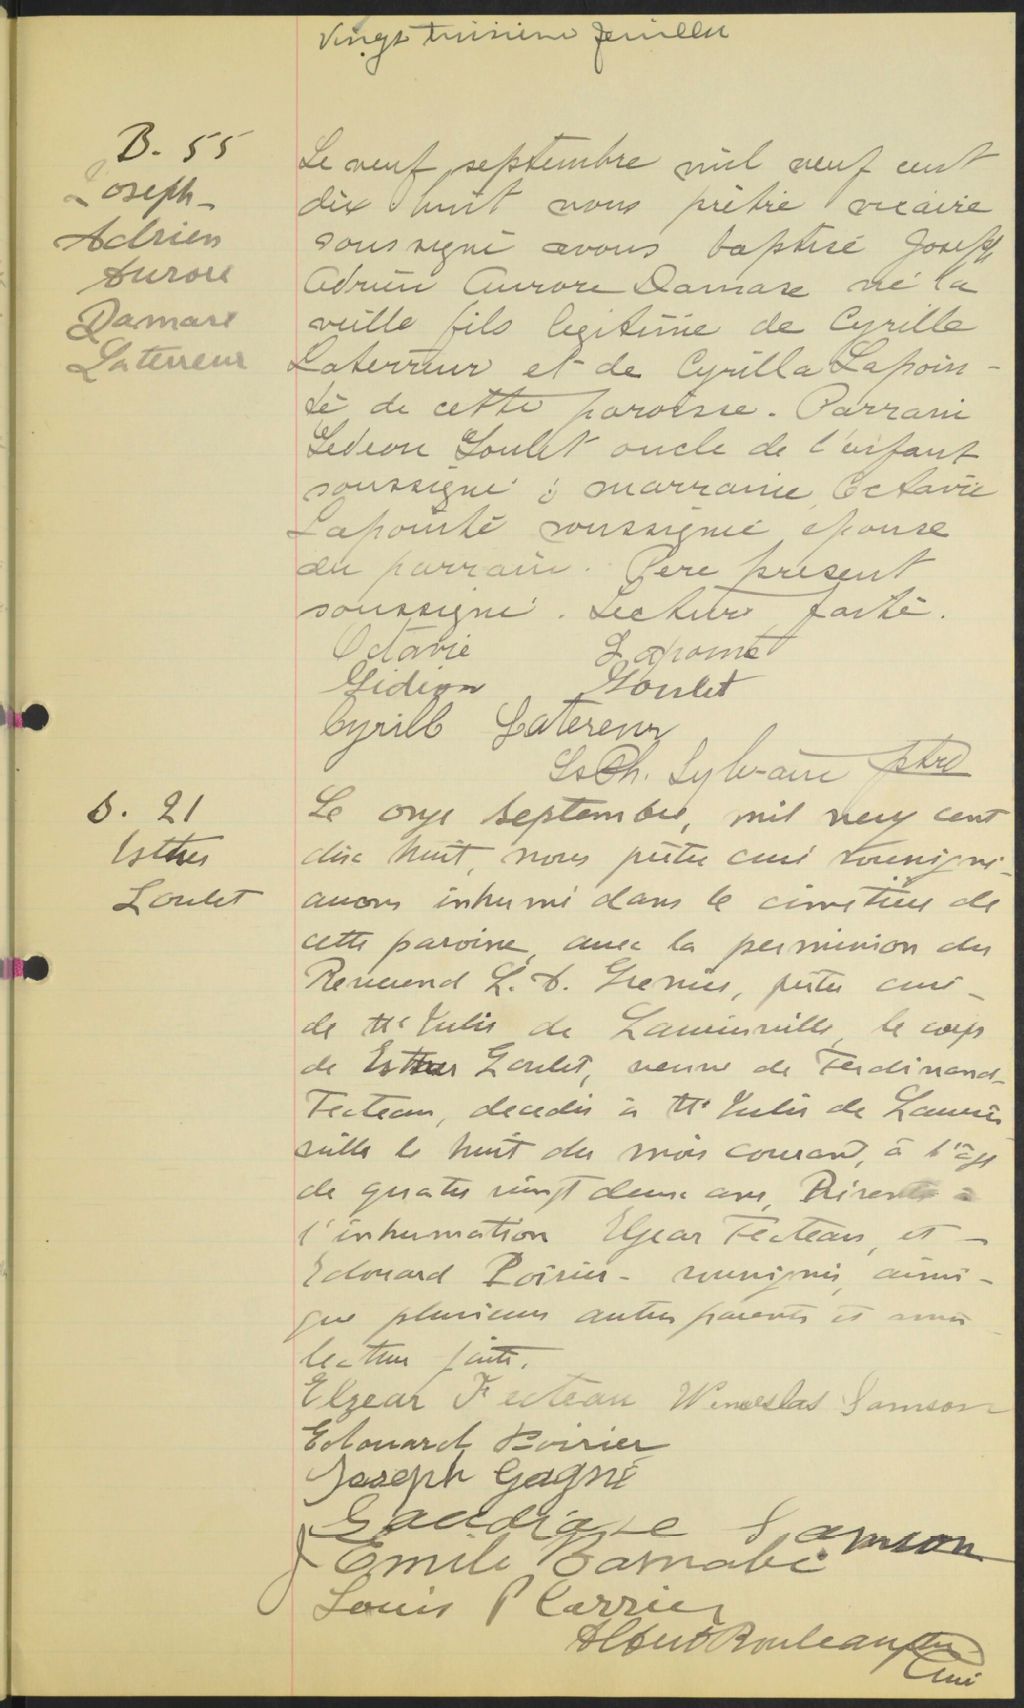 Vingt troisième feuillet
B. 55
Joseph
Adrien
Aurore
Damase
Laterreur
Le neuf septembre mil neuf cent
dix huit nous prêtre vicaire
soussigné avons baptisé Joseph
Adrien Aurore Damase né la
veille fils légitime de Cyrille
Laterreur et de Cyrilla Lapoin-
te de cette paroisse. Parrain
Gédéon Goulet oncle de l'enfant
soussigné ; marraine Octavie
Lapointe soussignée épouse
du parrain. Père présent
soussigné. Lecture faite.
Octavie Lapointe
Gédéon Goulet
Cyrille Latereur
Ls Ch. Sylvain ptre
S. 21
Esther
Goulet
Le onze septembre, mil neuf cent
dix huit, nous prêtre curé soussigné
avons inhumé dans le cimetière de
cette paroisse, avec la permission du
Révérend L. A. Grenier, prêtre curé
de Ste Julie de Laurierville, le corps
de Esther Goulet, veuve de Ferdinand
Fecteau, décédée à Ste Julie de Laurier
ville le huit du mois courant, à l'âge
de quatre vingt deux ans, Présents à
l'inhumation Elzear Fecteau, et
Edouard Poirier - soussignés, ainsi
que plusieurs autres parents et amis
lecture faite.
Elzear Fecteau Wenceslas Samson
Edouard Poirier
Joseph Gagné
Samson
J Emile Barnabé
Louis P Carrier
Albert Rouleau ptre
Curé